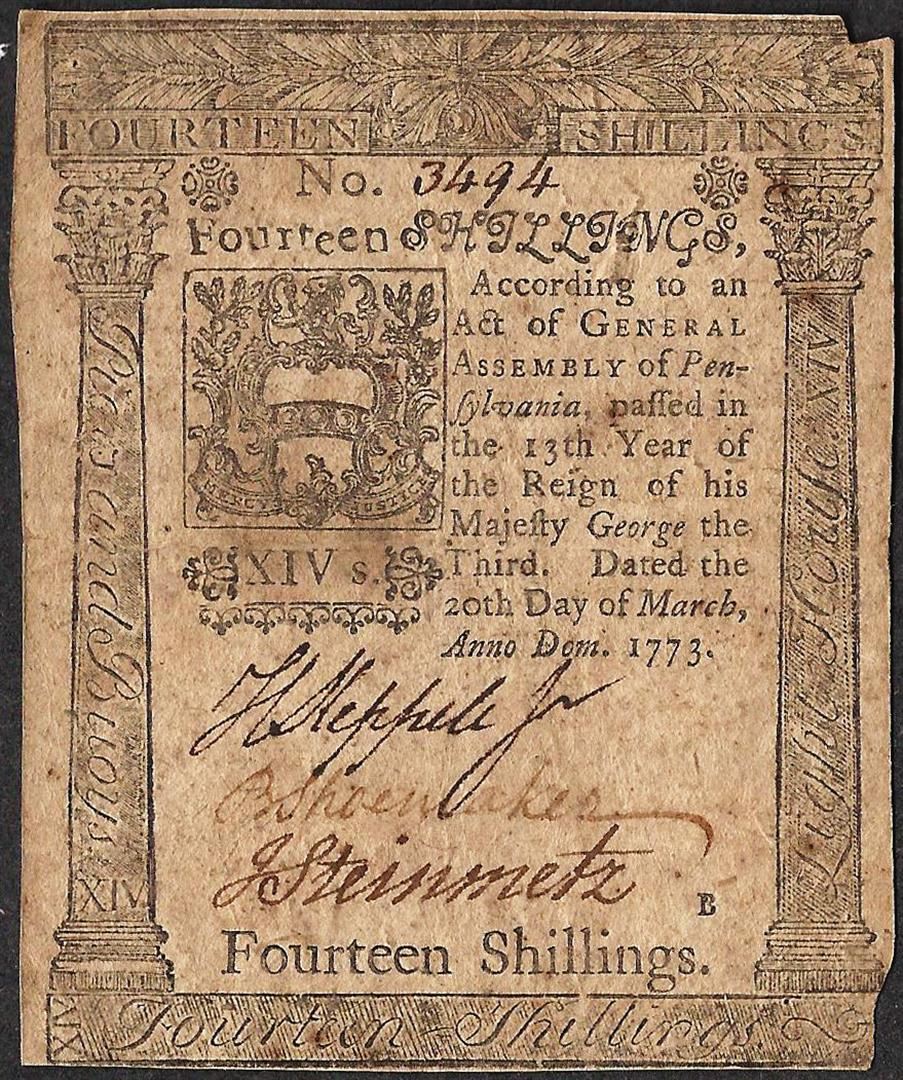 FOURTEEN SHILLINGS
No. 3494
Fourteen SHILLINGS,
According to an
Act of GENERAL
ASSEMBLY of Pen-
ſylvania, paſſed in
the 13th Year of
the Reign of his
Majeſty George the
Third. Dated the
20th Day of March,
Anno Dom. 1773.
MERCY JUSTICE
XIV s.
Piers and Buoys XIV
Light-Houſe. XIV
H Keppele Jr
B Shoemaker
J Steinmetz
B
Fourteen Shillings.
XIV Fourteen-Shillings.